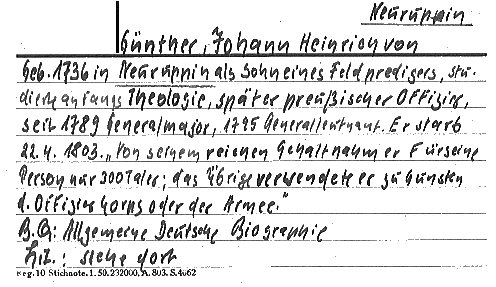 Neuruppin
Günther, Johann Heinrich von
Geb. 1736 in Neuruppin als Sohn eines Feldpredigers, stu-
dierte anfangs Theologie, später preußischer Offizier,
seit 1789 Generalmajor, 1795 Generalleutnant. Er starb
22.4.1803. „Von seinem reichen Gehalt nahm er für seine
Person nur 300 Taler; das Übrige verwendete er zu Gunsten
d. Offizierkorps oder der Armee."
B.Q.: Allgemeine Deutsche Biographie
Lit.: siehe dort
Reg. 10 Stichnote. 1. 50. 232000. A. 803. S. 4662